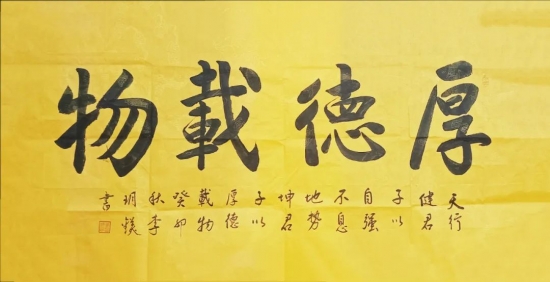 厚德載物
天行
健君
子以
自强
不息
地勢
坤君
子以
厚德
載物
癸卯
秋李
玥
書